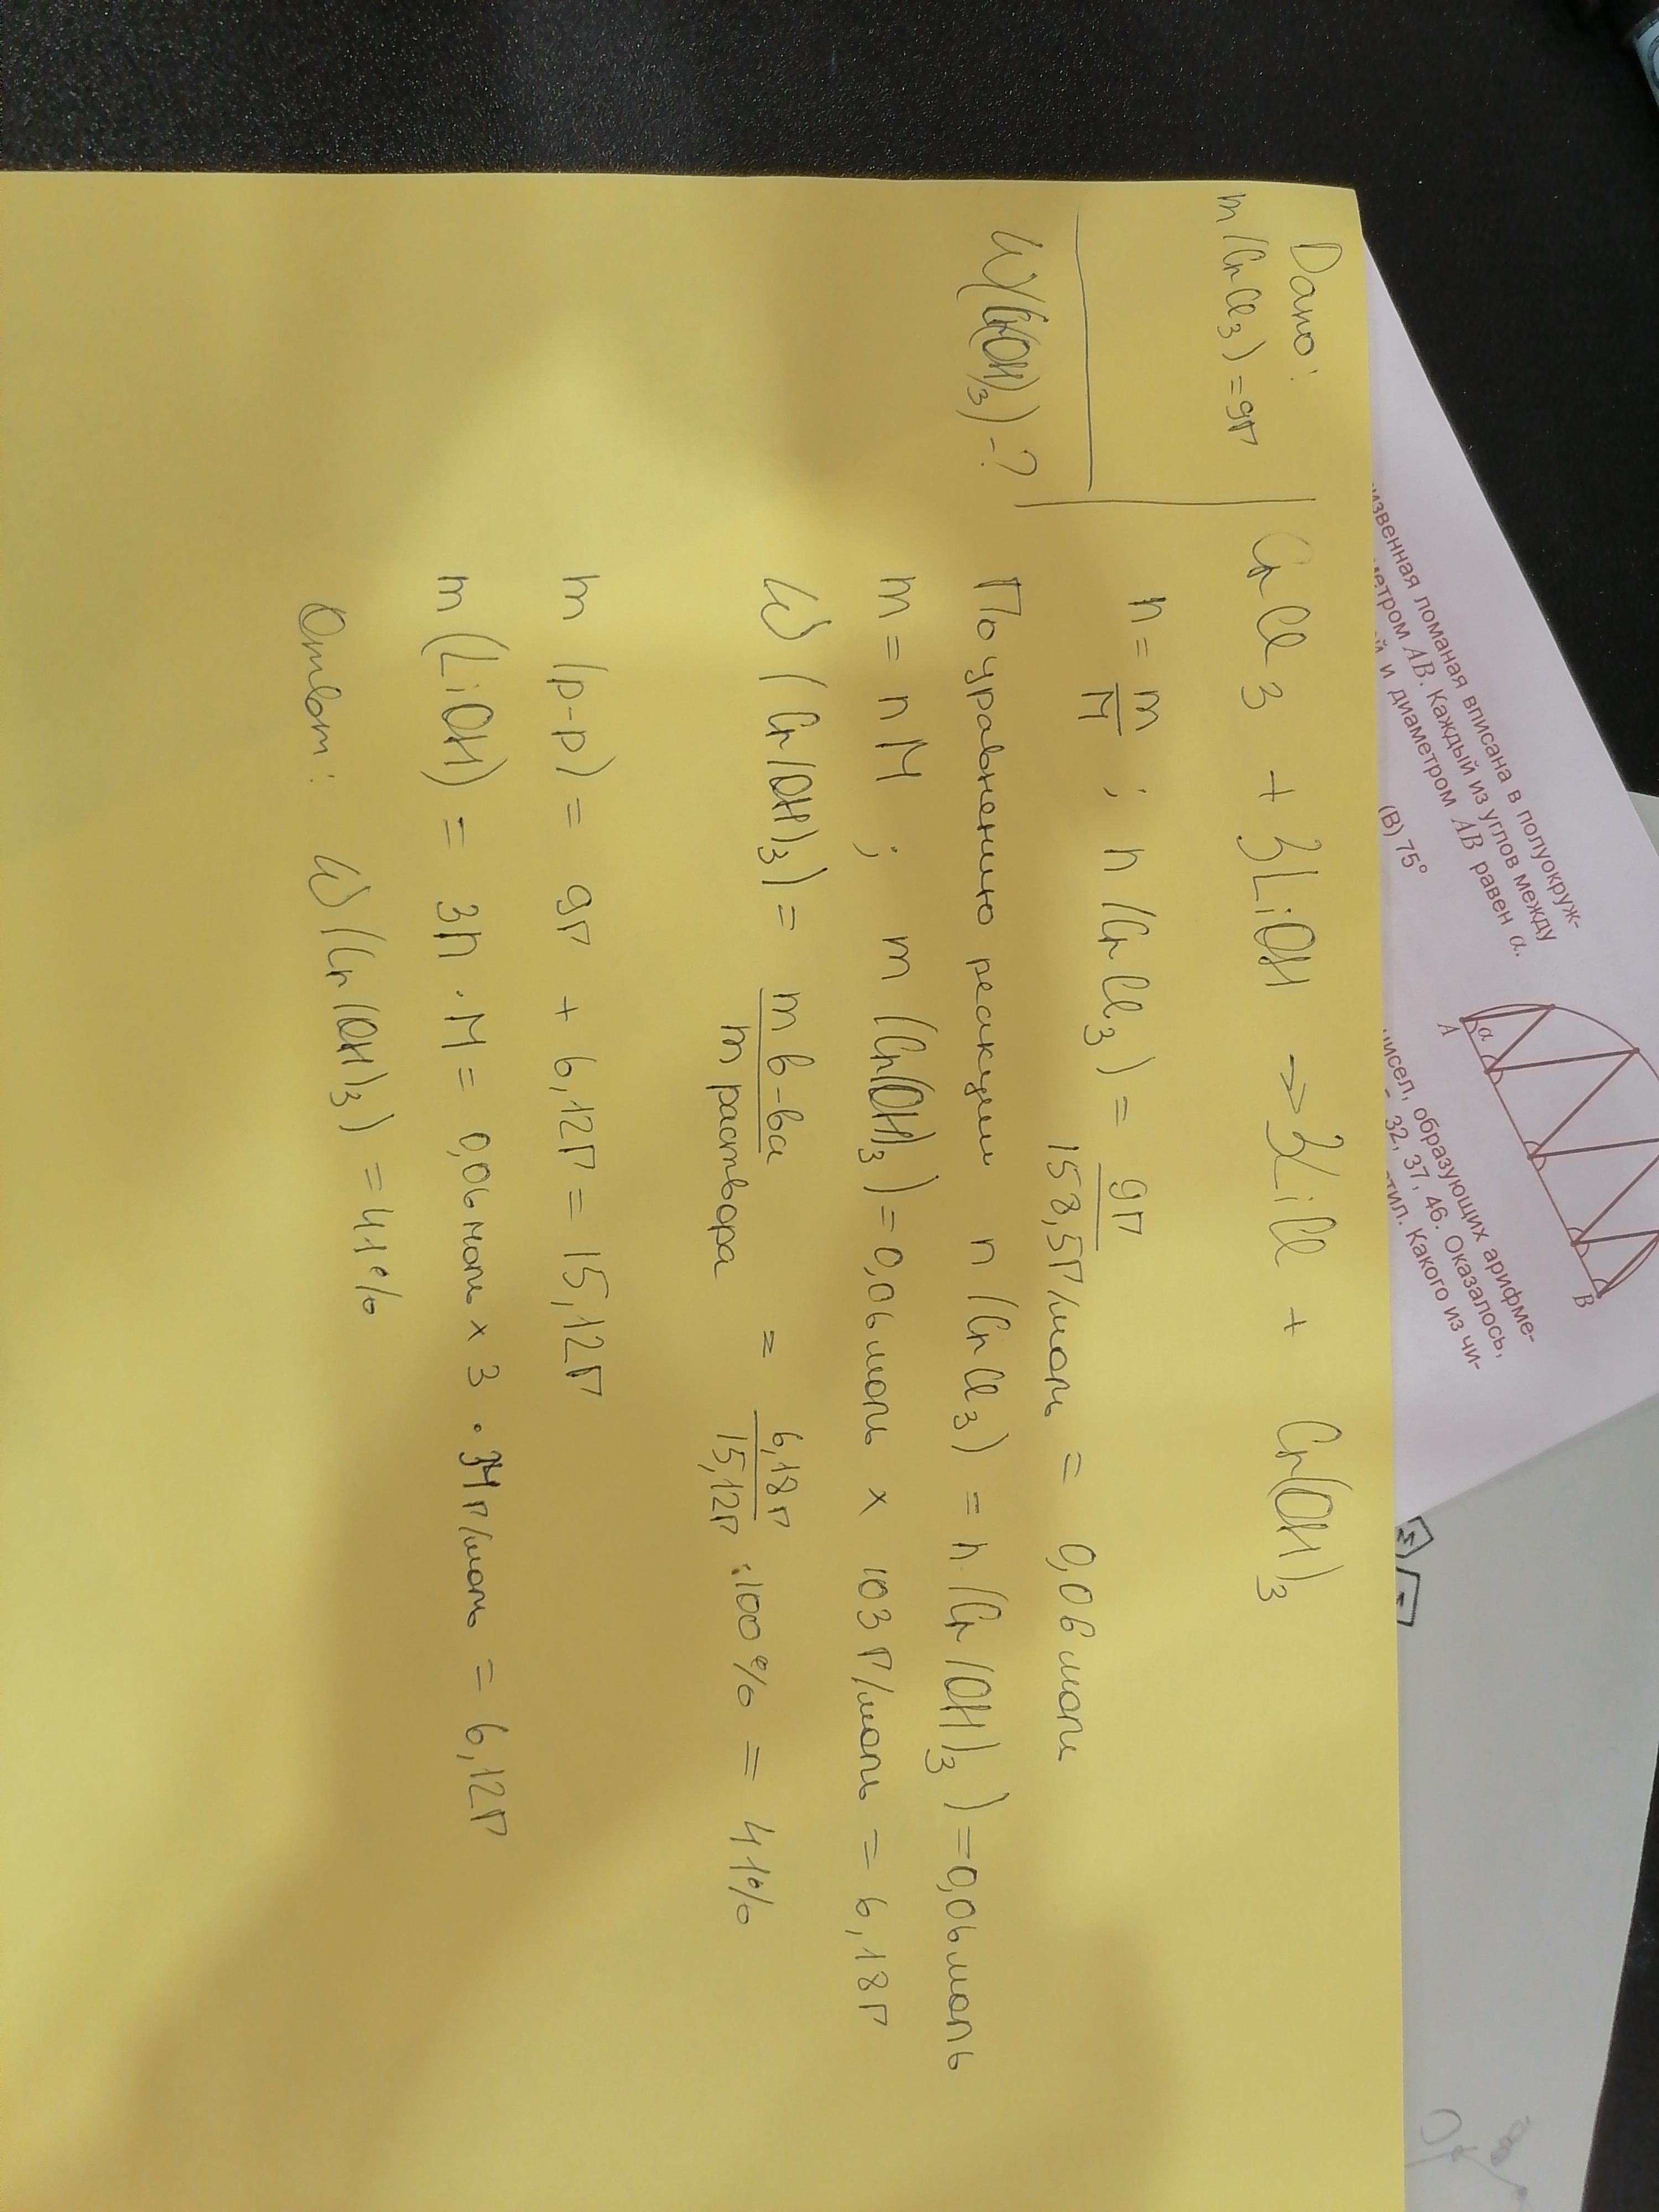 Дано:
m(CrCl3)=9г
W(Cr(OH)3)-?
CrCl3 + 3LiOH → 3LiCl + Cr(OH)3
n = m/M ; n(CrCl3) = 9г/158,5г/моль = 0,06 моль
По уравнению реакции n(CrCl3) = n(Cr(OH)3) = 0,06 моль
m = n M ; m(Cr(OH)3) = 0,06 моль × 103 г/моль = 6,18г
W(Cr(OH)3) = m в-ва/m раствора = 6,18г/15,12г · 100% = 41%
m(р-р) = 9г + 6,12г = 15,12г
m(LiOH) = 3n · M = 0,06 моль × 3 · 34г/моль = 6,12г
Ответ: W(Cr(OH)3) = 41%
извенная ломаная вписана в полуокруж-
метром AB. Каждый из углов между
й и диаметром AB равен α.
(В) 75°
A
α
B
чисел, образующих арифме-
32, 37, 46. Оказалось,
стил. Какого из чи-